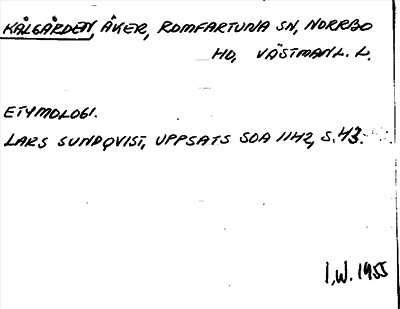 KÅLGÅRDEN, ÅKER, ROMFARTUNA SN, NORRBO
HD, VÄSTMANL. L.
ETYMOLOGI.
LARS SUNDQVIST, UPPSATS SOA 1142, S. 43.
I.W. 1955